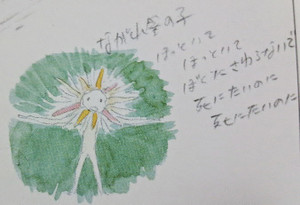 ながれ星の子
ほっといて
ほっといて
ぼくにさわらないで
死にたいのに
死にたいのに